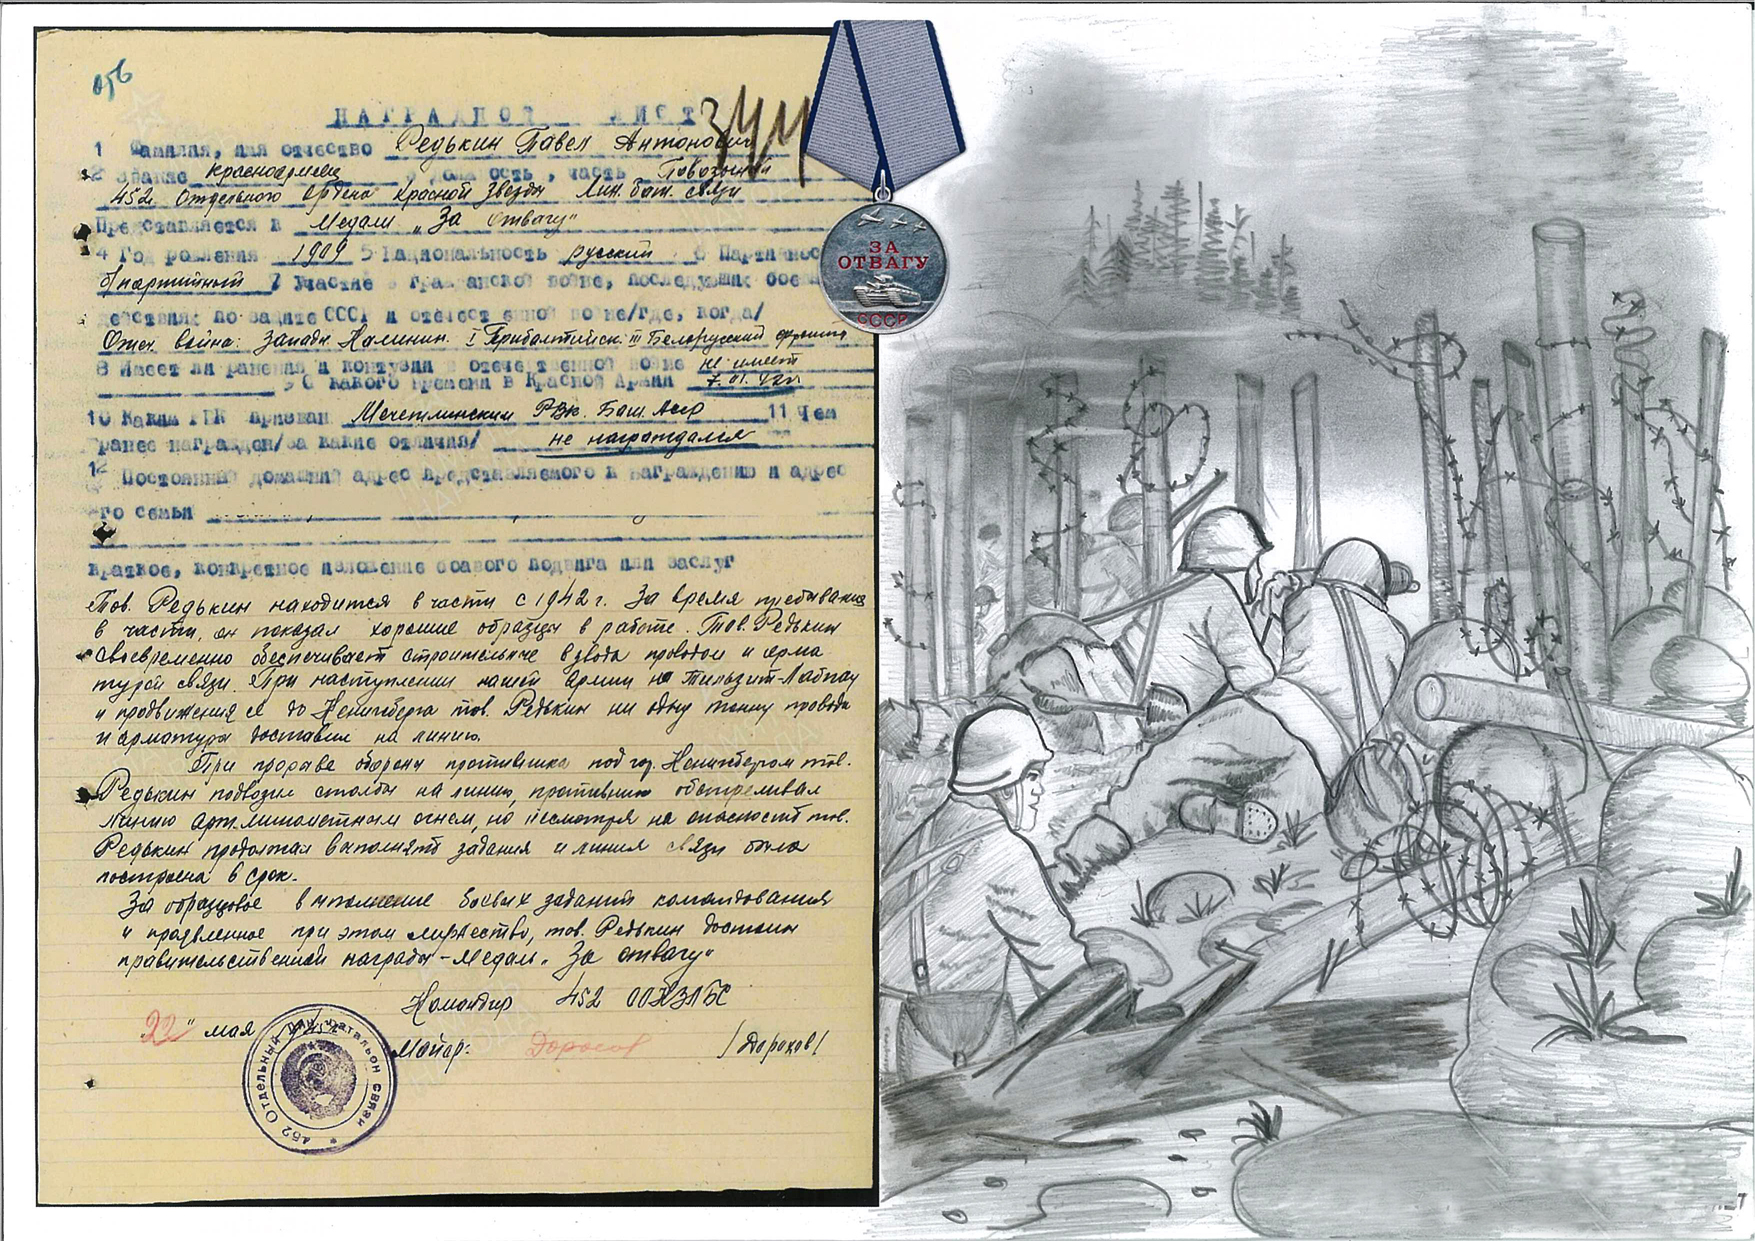 056
НАГРАДНОЙ ЛИСТ
344
1 Фамилия, имя отчество Редькин Павел Антонович
2 Звание красноармеец должность, часть Повозочный
452 Отдельного ордена Красной Звезды Лин. бат. связи
Представляется к Медали „За Отвагу"
4 Год рождения 1909 5 Национальность русский 6 Партийнос
б/партийный 7 Участие в гражданской войне, последующих боевы
действиях по защите СССР и отечественной войне/где, когда/
Отеч. война: Западн. Калинин. I Прибалтийск. III Белорусский фронта
8 Имеет ли ранения и контузии в отечественной войне не имеет
9 С какого времени в Красной Армии 7.01.42г
10 Каким РВК призван Мечетлинским РВк. Баш. Асср 11 Чем
ранее награжден/за какие отличия/ не награждался
12 Постоянный домашний адрес представляемого к награждению и адрес
его семьи
краткое, конкретное изложение боевого подвига или заслуг
Тов. Редькин находится в части с 1942 г. За время пребывания
в части, он показал хорошие образцы в работе. Тов. Редькин
своевременно обеспечивает строительные взвода проводом и арма
турой связи. При наступлении нашей армии на Тильзит-Лабиау
и продвижения её до Кенигсберга тов. Редькин ни одну тонну провода
и арматуры доставил на линию.
При прорыве обороны противника под гор. Кенигсбергом тов.
Редькин подвозил столбы на линию, противник обстреливал
линию арт. минометным огнем, но несмотря на опасность тов.
Редькин продолжал выполнять задания и линия связи была
построена в срок.
За образцовое выполнение боевых заданий командования
и проявленное при этом мужество, тов. Редькин достоин
правительственной награды - медаль „За отвагу"
Командир 452 ООКЗЛБС
22" мая 1945
Майор: Дорохов /Дорохов/
452 Отдельный лин. батальон связи
ЗА
ОТВАГУ
СССР